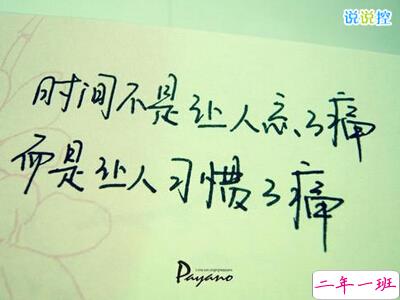 说说控
时间不是让人忘了痛
而是让人习惯了痛
Payano
二年一班